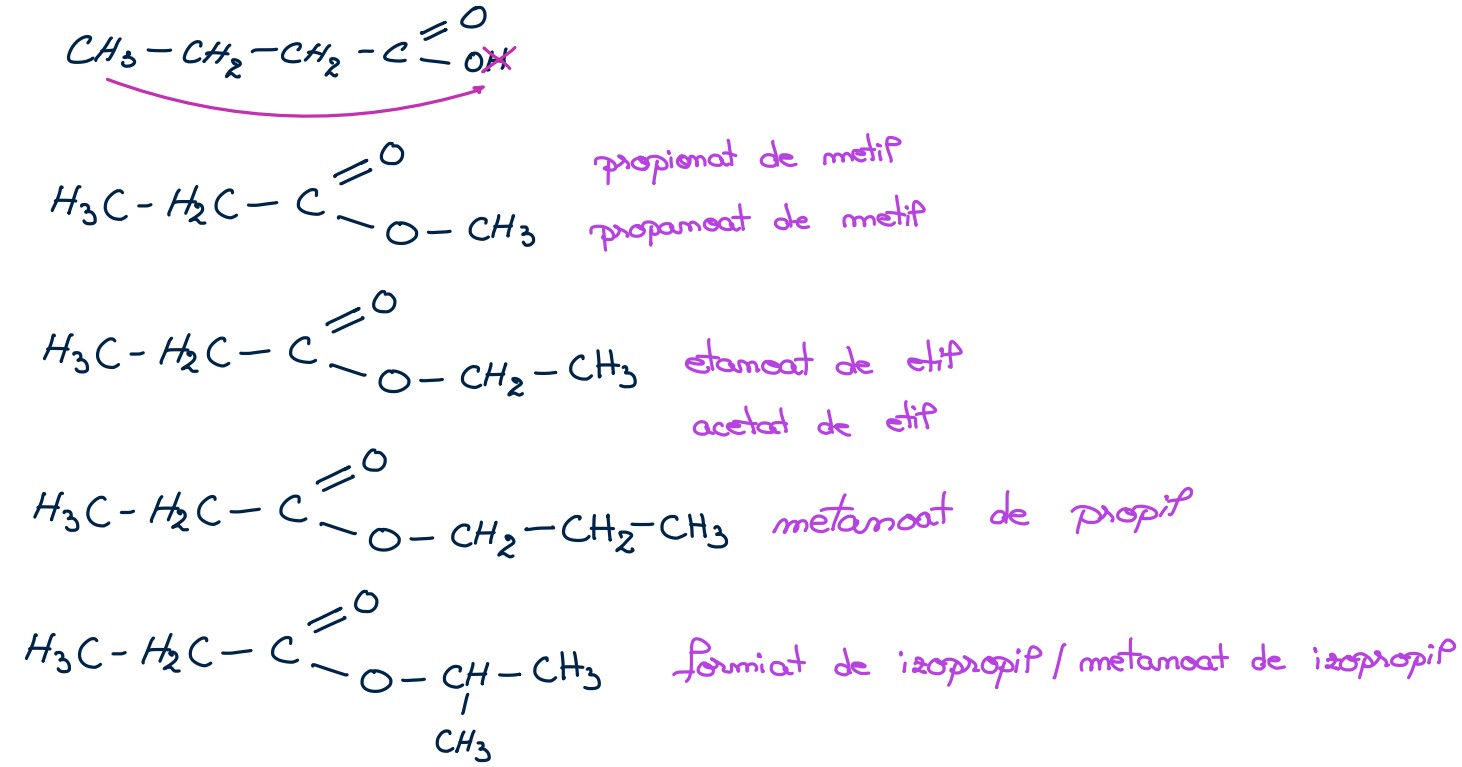 CH₃ — CH₂ — CH₂ - C = O — OH
H₃C - H₂C — C = O — O — CH₃
propionat de metil
propanoat de metil
H₃C - H₂C — C = O — O — CH₂ — CH₃
etanoat de etil
acetat de etil
H₃C - H₂C — C = O — O — CH₂ — CH₂ — CH₃
metanoat de propil
H₃C - H₂C — C = O — O — CH — CH₃
formiat de izopropil / metanoat de izopropil
CH₃